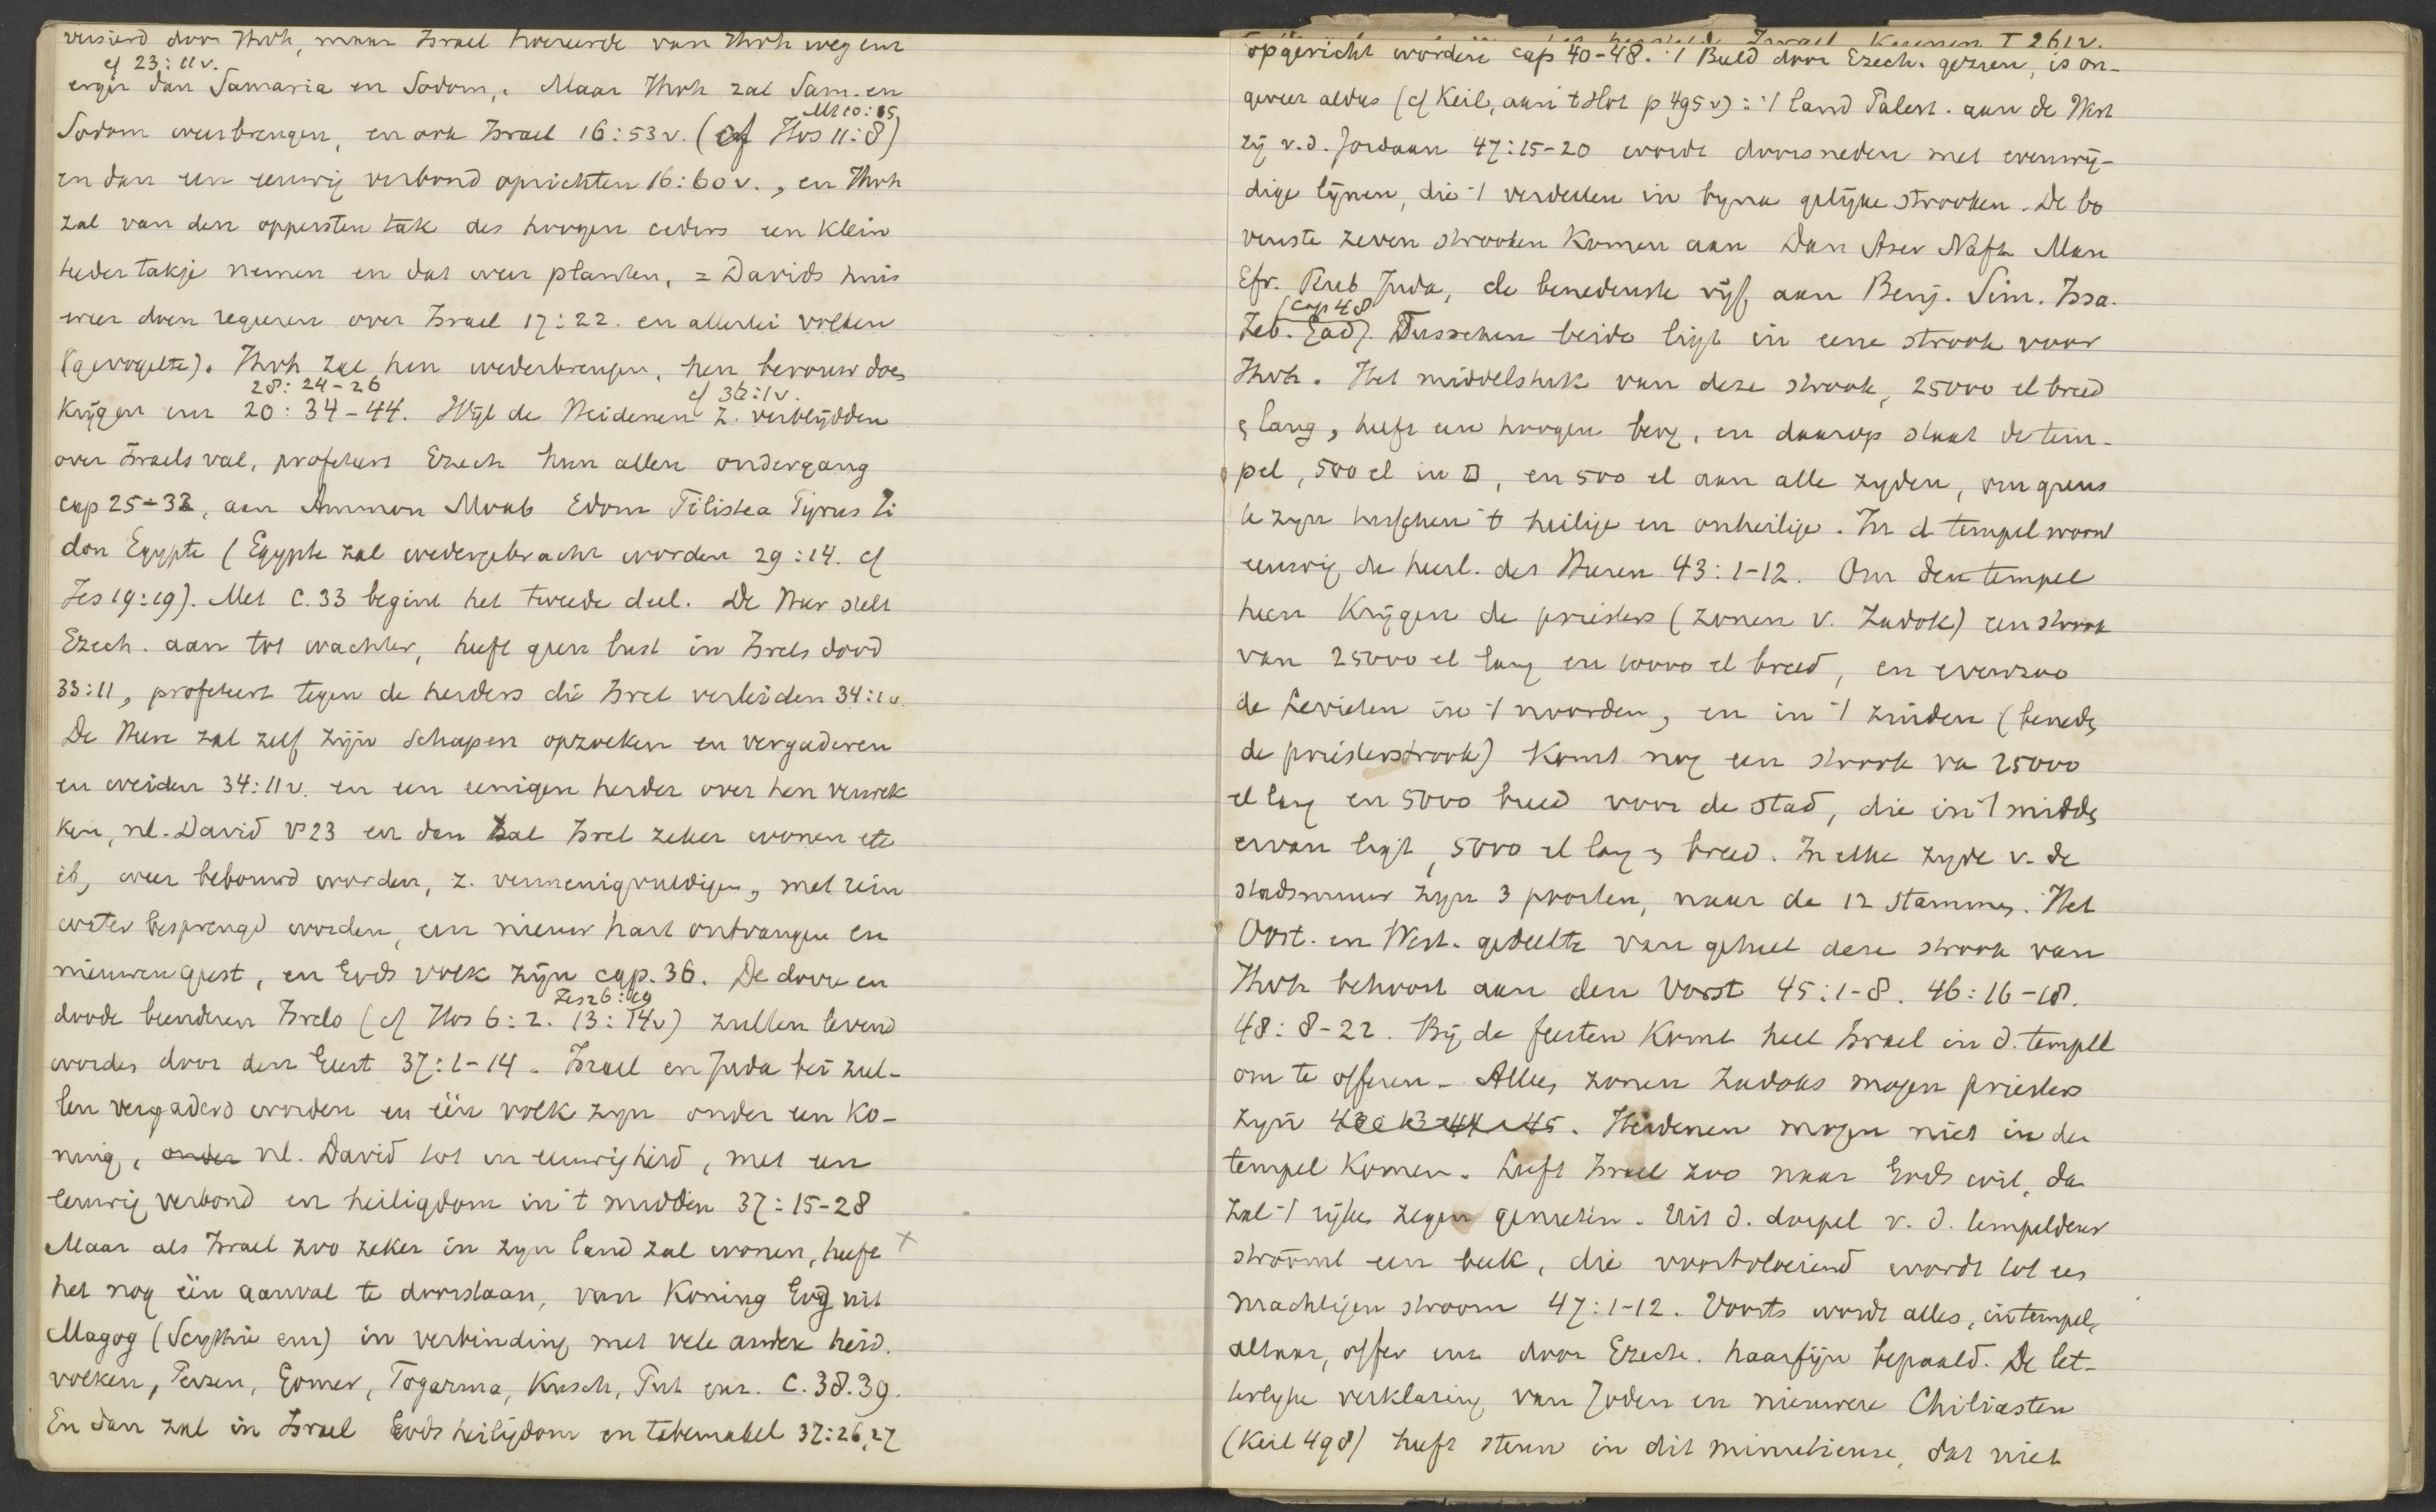 versierd door Jhvh, maar Israel hoereerde van Jhvh weg enz
cf 23:11v.
erger dan Samaria en Sodom,. Maar Jhvh zal Sam. en
Mt 10:15
Sodom weerbrengen, en ook Israel 16:53v. (cf Hos 11:8)
en dan een eeuwig verbond oprichten 16:60v., en Jhvh
zal van den oppersten tak des hoogen ceders een klein
teeder takje nemen en dat weer planten, = Davids huis
weer doen regeeren over Israel 17:22. en allerlei volken
(gevogelte). Jhvh zal hen wederbrengen, hen berouw doen
28:24-26
cf 36:1v.
krijgen enz 20:34-44. Wijl de Heidenen z. verblijdden
over Israels val, profeteert Ezech hun allen ondergang
cap 25-32, aan Ammon Moab Edom Filistea Tyrus Si
don Egypte (Egypte zal wedergebracht worden 29:14. cf
Jes 19:19). Met C.33 begint het tweede deel. De Heer stelt
Ezech. aan tot wachter, heeft geen lust in Isrels dood
33:11, profeteert tegen de herders die Isrel verleiden 34:1v.
De Heer zal zelf zijn schapen opzoeken en vergaderen
en weiden 34:11v. en een eenigen herder over hen verwek
ken, nl. David v 23 en dan zal Isrel zeker wonen etc
ib, weer bebouwd worden, z. vermenigvuldigen, met rein
water besprengd worden, een nieuw hart ontvangen en
nieuwen geest, en Gods volk zijn cap. 36. De dorre en
Jes 26:19
doode beenderen Isrels (cf Hos 6:2. 13:14v) zullen levend
worden door den Geest 37:1-14. Israel en Juda bei zul-
len vergaderd worden en één volk zijn onder een Ko-
ning, onder nl. David tot in eeuwigheid, met een
eeuwig verbond en heiligdom in 't midden 37:15-28
Maar als Israel zoo zeker in zyn land zal wonen, heeft X
het nog één aanval te doorstaan, van Koning Gog uit
Magog (Scythië enz) in verbinding met vele andere heid.
volken, Perzen, Gomer, Togarma, Kusch, Put enz. C.38.39.
En dan zal in Israel Gods heiligdom en tabernakel 37:26,27
Israel Kuenen I 261v.
opgericht worden cap 40-48. 't Beeld door Ezech. gezien, is on-
geveer aldus (cf Keil, aan 't slot p 495v): 't land Palest. aan de West
zij v.d. Jordaan 47:15-20 wordt doorsneden met evenwij-
dige lijnen, die 't verdeelen in byna gelijke strooken. De bo
venste zeven strooken komen aan Dan Aser Naft Man
Efr. Rub Juda, de benedenste vijf aan Benj. Sim. Issa.
(cap 48
Zeb. Gad). Tusschen beide ligt in eene strook voor
Jhvh. Het middelstuk van deze strook, 25000 el breed
en lang, heeft een hoogen berg, en daarop staat de tem-
pel, 500 el in □, en 500 el aan alle zyden, om grens
te zyn tusschen 't heilige en onheilige. In d tempel woont
eeuwig de heerl. des Heeren 43:1-12. Om den tempel
heen krijgen de priesters (zonen v. Zadok) een strook
van 25000 el lang en 10000 el breed, en evenzoo
de Levieten in 't noorden, en in 't zuiden (beneden
de priesterstrook) komt nog een strook van 25000
el lang en 5000 breed voor de stad, die in 't midden
ervan ligt, 5000 el lang en breed. In elke zyde v. de
stadsmuur zyn 3 poorten, naar de 12 stammen. Het
Oost. en West. gedeelte van geheel deze strook van
Jhvh behoort aan den Vorst 45:1-8. 46:16-18.
48:8-22. Bij de feesten komt heel Israel in d. tempel
om te offeren. Alleen zonen Zadoks mogen priesters
zyn. Heidenen mogen niet in den
tempel komen. Leeft Israel zoo naar Gods wil, dan
zal 't rijken zegen genieten. Uit d. dorpel v. d. tempeldeur
stroomt een beek, die voortvloeiend wordt tot een
machtigen stroom 47:1-12. Voorts wordt alles, in tempel,
altaar, offer enz door Ezech. haarfijn bepaald. De let-
terlyke verklaring van Joden en nieuwere Chiliasten
(Keil 498) heeft steun in dit minutieuse, dat niet